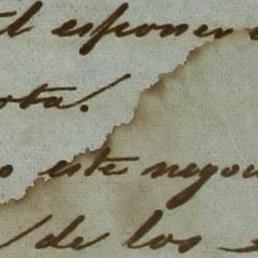 el esponer
ota.
o este negoc
de los